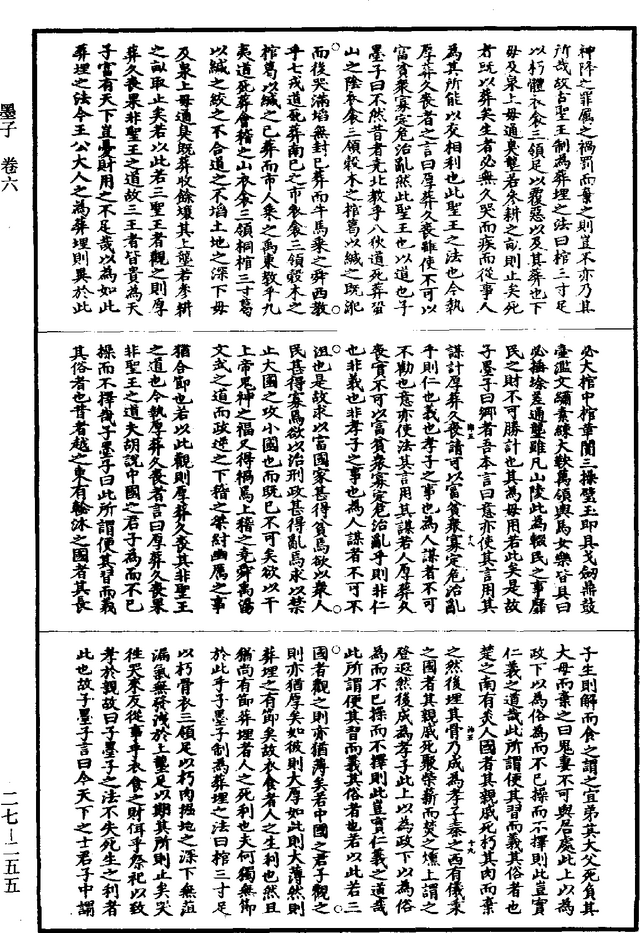 神降之罪厲之禍罰而棄之則豈不亦乃其
所哉故古聖王制為葬埋之法曰棺三寸足
以朽體衣衾三領足以覆惡以及其葬也下
毋及泉上毋通臭壟若參耕之畝則止矣死
者既以葬矣生者必無久哭而疾而從事人
為其所能以交相利也此聖王之法也今執
厚葬久喪者之言曰厚葬久喪雖使不可以
富貧衆寡定危治亂然此聖王也以道也子
墨子曰不然昔者堯北教乎八狄道死葬蛩
山之陰衣衾三領榖木之棺葛以緘之既
而後哭滿埳無封已葬而牛馬乘之舜西教
乎七戎道死葬南己之市衣衾三領榖木之
棺葛以緘之已葬而市人乘之禹東教乎九
夷道死葬會稽之山衣衾三領桐棺三寸葛
以緘之絞之不合道之不埳土地之深下毋
及泉上毋通臭既葬收餘壤其上壟若參耕
之畝取止矣若以此若三聖王者觀之則厚
葬久喪果非聖王之道故三王者皆貴為天
子富有天下豈憂財用之不足哉以為如此
葬埋之法今王公大人之為葬埋則異於此
必大棺中棺革闠三操璧玉即具戈劒鼎鼓
壺濫文繡素練大鞅萬領輿馬女樂皆具曰
必捶涂差通壟雖凡山陵此為輟民之事靡
民之財不可勝計也其為毋用若此矣是故
子墨子曰鄉者吾本言曰意亦使其言用其
謀計厚葬久喪請可以富貧衆寡定危治亂
乎則仁也義也孝子之事也為人謀者不可
不勸也意亦使法其言用其謀若人厚葬久
喪實不可以富貧衆寡定危治亂乎則非仁
也非義也非孝子之事也為人謀者不可不
沮也是故求以富國家甚得貧焉欲以衆人
民甚得寡焉欲以治刑政甚得亂焉求以禁
止大國之攻小國也而既已不可矣欲以干
上帝鬼神之福又得禍焉上稽之堯舜禹湯
文武之道而政逆之下稽之桀紂幽厲之事
猶合節也若以此觀則厚葬久喪其非聖王
之道也今執厚葬久喪者言曰厚葬久喪果
非聖王之道夫胡說中國之君子為而不已
操而不擇哉子墨子曰此所謂便其習而義
其俗者也昔者越之東有輆沐之國者其長
子生則解而食之謂之宜弟其大父死負其
大母而棄之曰鬼妻不可與居處此上以為
政下以為俗為而不已操而不擇則此豈實
仁義之道哉此所謂便其習而義其俗者也
楚之南有炎人國者其親戚死朽其肉而棄
之然後埋其骨乃成為孝子秦之西有儀秉
之國者其親戚死聚柴薪而焚之燻上謂之
登遐然後成為孝子此上以為政下以為俗
為而不已操而不擇則此豈實仁義之道哉
此所謂便其習而義其俗者也若以此若三
國者觀之則亦猶薄矣若中國之君子觀之
則亦猶厚矣如彼則大厚如此則大薄然則
葬埋之有節矣故衣食者人之生利也然且
猶尚有節葬埋者人之死利也夫何獨無節
於此乎子墨子制為葬埋之法曰棺三寸足
以朽骨衣三領足以朽肉掘地之深下無菹
漏氣無發洩於上壟足以期其所則止矣哭
往哭來反從事乎衣食之財佴乎祭祀以致
孝於親故曰子墨子之法不失死生之利者
此也故子墨子言曰今天下之士君子中謂
墨子 卷六
二七—二五五